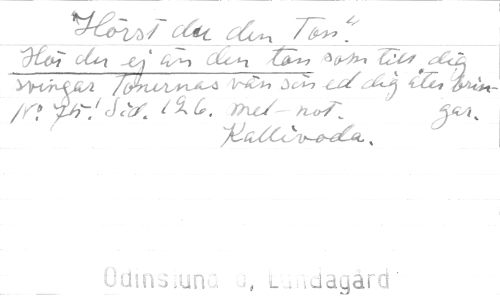 "Hörst du den Ton".
Hör du ej än den ton som till dig
svingar Tonernas vän sin ed dig åter brin-
No. 75. Sid. 126. mel-not. gar.
Kallivoda.
Odinslund o, Lundagård